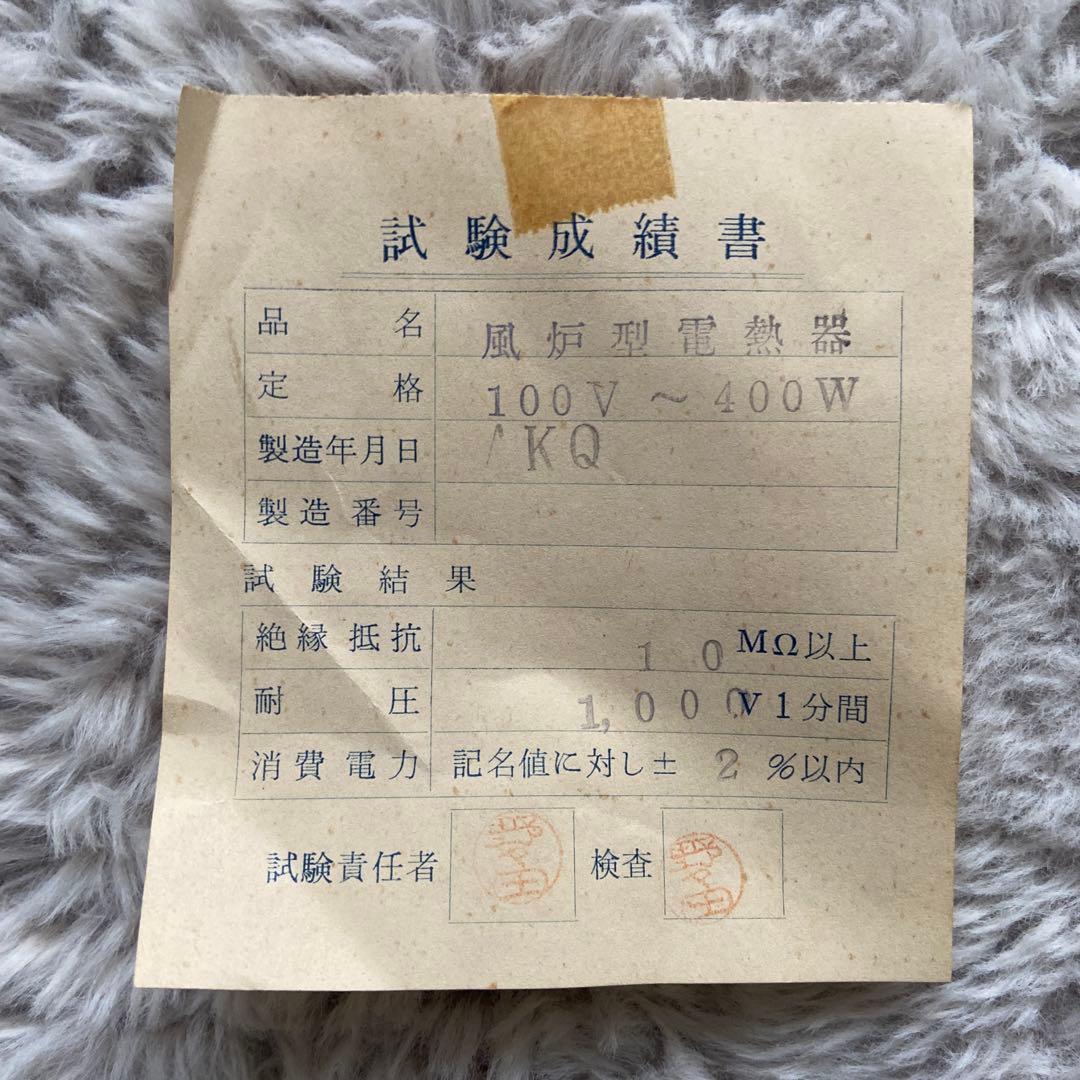 試験成績書
品名 風炉型電熱器
定格 100V ～ 400W
製造年月日 KQ
製造番号
試験結果
絶縁抵抗 10 MΩ以上
耐圧 1,000V1分間
消費電力 記名値に対し± 2 %以内
試験責任者 検査